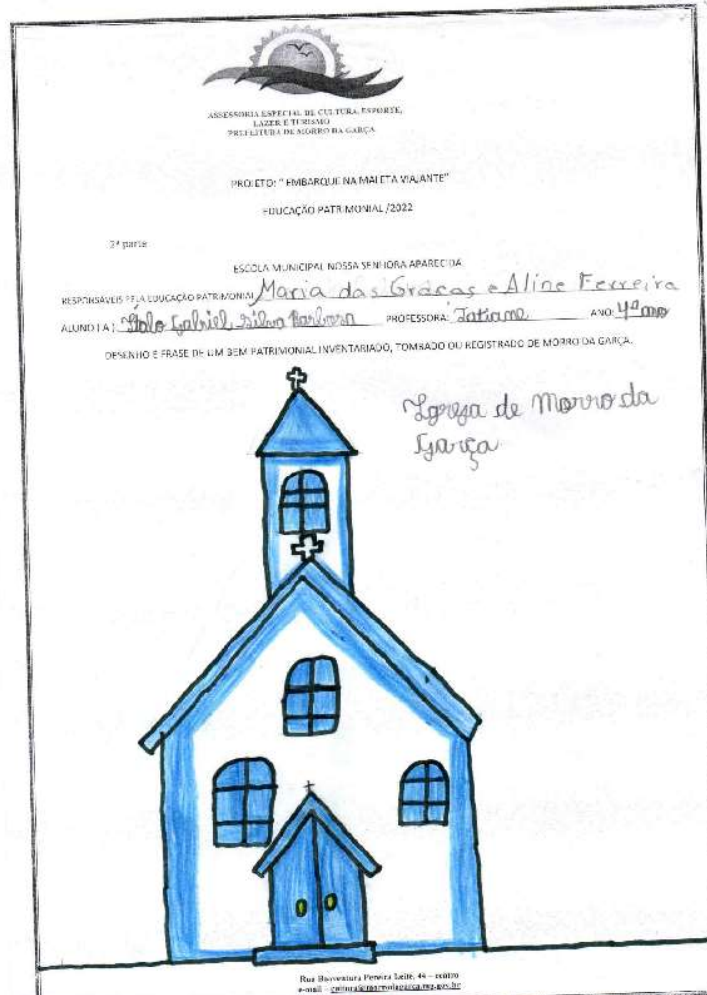 ASSESSORIA ESPECIAL DE CULTURA, ESPORTE,
LAZER E TURISMO
PREFEITURA DE MORRO DA GARÇA
PROJETO: " EMBARQUE NA MALETA VIAJANTE"
EDUCAÇÃO PATRIMONIAL /2022
2ª parte
ESCOLA MUNICIPAL NOSSA SENHORA APARECIDA
RESPONSÁVEIS PELA EDUCAÇÃO PATRIMONIAL Maria das Graças e Aline Ferreira
ALUNO ( A ) Italo Gabriel Silva Barbosa PROFESSORA: Tatiane ANO: 4º ano
DESENHO E FRASE DE UM BEM PATRIMONIAL INVENTARIADO, TOMBADO OU REGISTRADO DE MORRO DA GARÇA.
Igreja de Morro da
Garça
Rua Boaventura Pereira Leite, 44 – centro
e-mail – cultura@morrodagarca.mg.gov.br